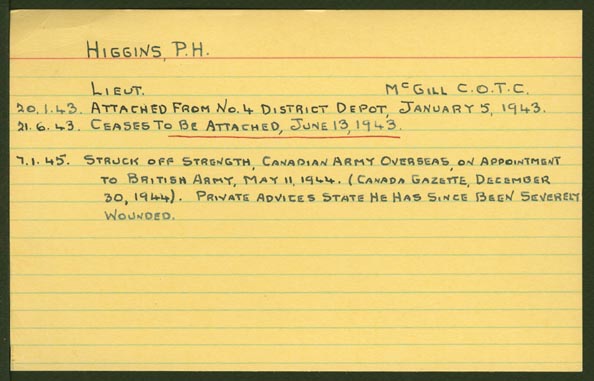 HIGGINS, P.H.
LIEUT. McGILL C.O.T.C.
20.1.43. ATTACHED FROM NO.4 DISTRICT DEPOT, JANUARY 5, 1943.
21.6.43. CEASES TO BE ATTACHED, JUNE 13, 1943.
7.1.45. STRUCK OFF STRENGTH, CANADIAN ARMY OVERSEAS, ON APPOINTMENT
TO BRITISH ARMY, MAY 11, 1944. (CANADA GAZETTE, DECEMBER
30, 1944). PRIVATE ADVICES STATE HE HAS SINCE BEEN SEVERELY
WOUNDED.